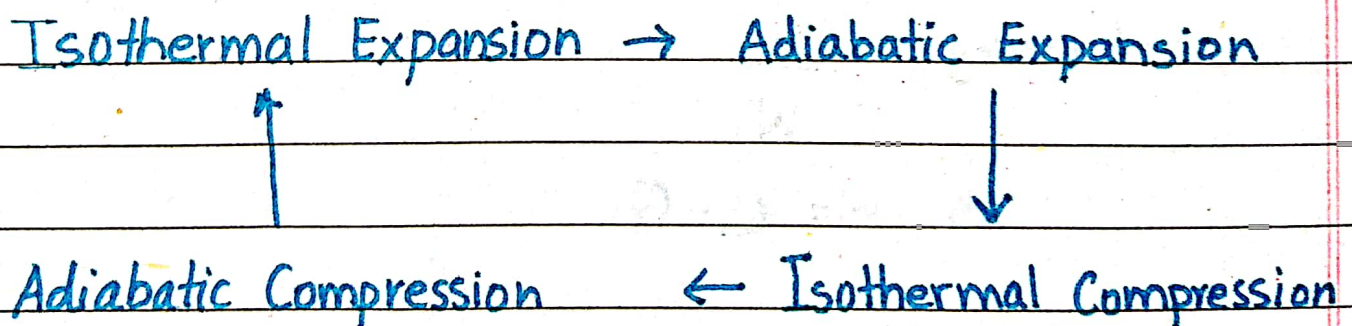 Isothermal Expansion → Adiabatic Expansion
Adiabatic Compression ← Isothermal Compression